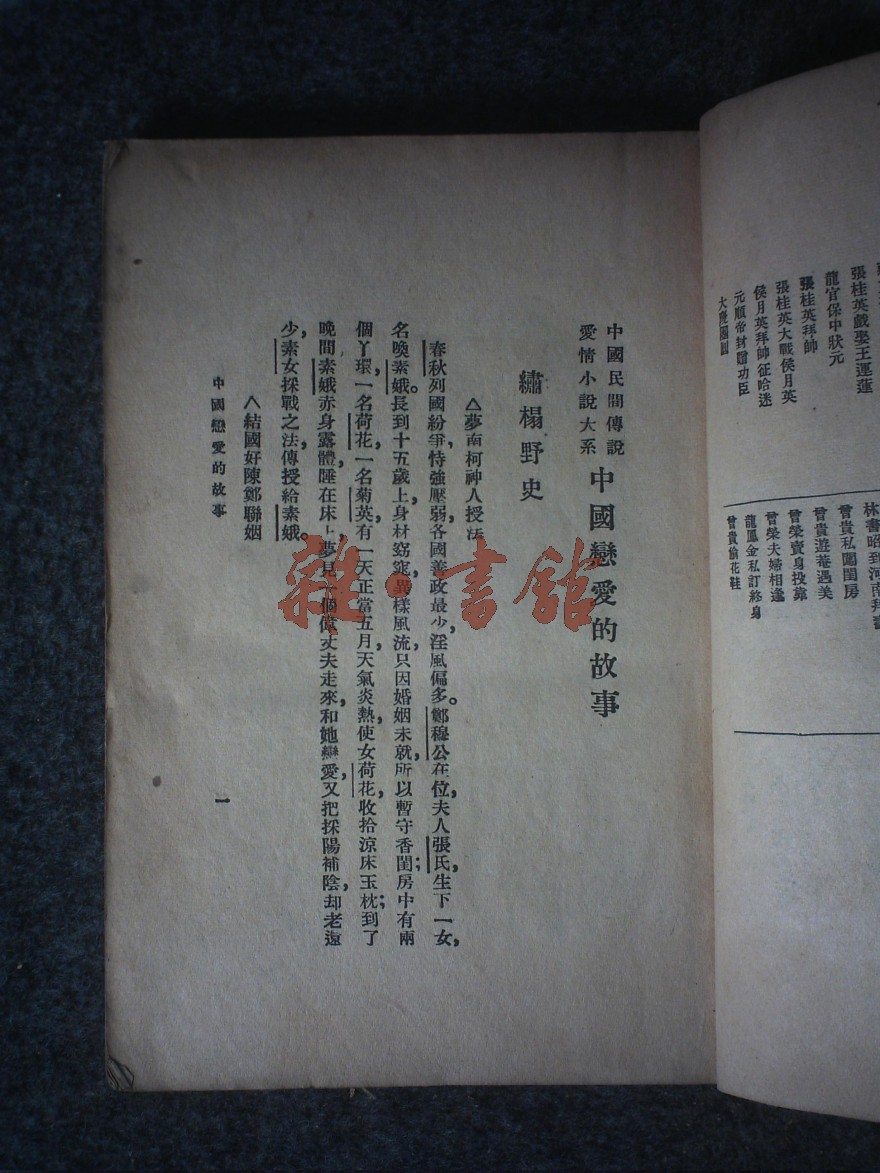 張桂英戲娶王運蓮
龍官保中狀元
張桂英拜帥
張桂英大戰侯月英
侯月英拜帥征哈迷
元順帝封贈功臣
大慶團圓
曾貴私闖閨房
曾貴遊菴遇美
曾榮賣身投靠
曾榮夫婦相逢
龍鳳金私訂終身
曾貴偷花鞋
中國民間傳說
愛情小說大系
中國戀愛的故事
繡榻野史
△夢南柯神人授法
春秋列國紛爭,恃強壓弱,各國善政最少,淫風偏多。鄭穆公在位,夫人張氏,生下一女,
名喚素娥。長到十五歲上,身材窈窕,異樣風流,只因婚姻未就,所以暫守香閨;房中有兩
個丫環,一名荷花,一名菊英,有一天正當五月,天氣炎熱,使女荷花,收拾涼床玉枕;到了
晚間,素娥赤身露體,睡在床上,夢見一個偉丈夫走來,和她戀愛,又把採陽補陰,却老還
少,素女採戰之法,傳授給素娥。
△結國好陳鄭聯姻
中國戀愛的故事
一
雜·書館